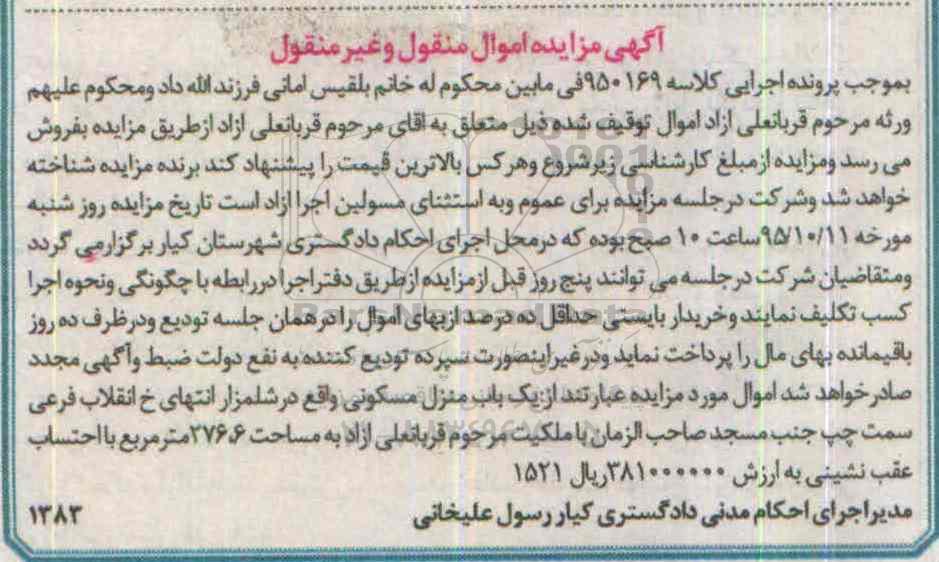 آگهی مزایده اموال منقول و غیر منقول
بموجب پرونده اجرایی کلاسه ۹۵۰۱۶۹فی مابین محکوم له خانم بلقیس امانی فرزند الله داد ومحکوم علیهم
ورثه مرحوم قربانعلی ازاد اموال توقیف شده ذیل متعلق به اقای مرحوم قربانعلی ازاد ازطریق مزایده بفروش
می رسد ومزایده ازمبلغ کارشناسی زیرشروع وهرکس بالاترین قیمت را پیشنهاد کند برنده مزایده شناخته
خواهد شد وشرکت درجلسه مزایده برای عموم وبه استثنای مسولین اجرا ازاد است تاریخ مزایده روز شنبه
مورخه ۹۵/۱۰/۱۱ساعت ۱۰ صبح بوده که درمحل اجرای احکام دادگستری شهرستان کیار برگزارمی گردد
ومتقاضیان شرکت درجلسه می توانند پنج روز قبل ازمزایده ازطریق دفتراجرا دررابطه با چگونگی ونحوه اجرا
کسب تکلیف نمایند وخریدار بایستی حداقل ده درصد ازبهای اموال را درهمان جلسه تودیع ودرظرف ده روز
باقیمانده بهای مال را پرداخت نماید ودرغیراینصورت سپرده تودیع کننده به نفع دولت ضبط وآگهی مجدد
صادرخواهد شد اموال مورد مزایده عبارتند از:یک باب منزل مسکونی واقع در شلمزار انتهای خ انقلاب فرعی
سمت چپ جنب مسجد صاحب الزمان با ملکیت مرحوم قربانعلی ازاد به مساحت ۲۷۶،۶مترمربع با احتساب
عقب نشینی به ارزش ۳۸۱۰۰۰۰۰۰ریال ۱۵۲۱
مدیراجرای احکام مدنی دادگستری کیار رسول علیخانی ۱۳۸۳